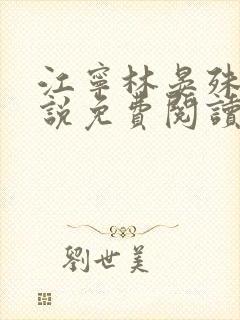 江寧林晏殊
說免費閱讀
劉世美